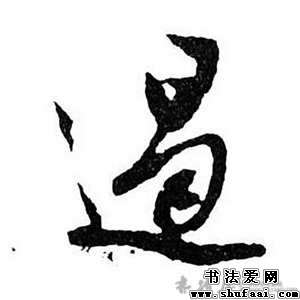 過
书法爱网
www.shufaai.com